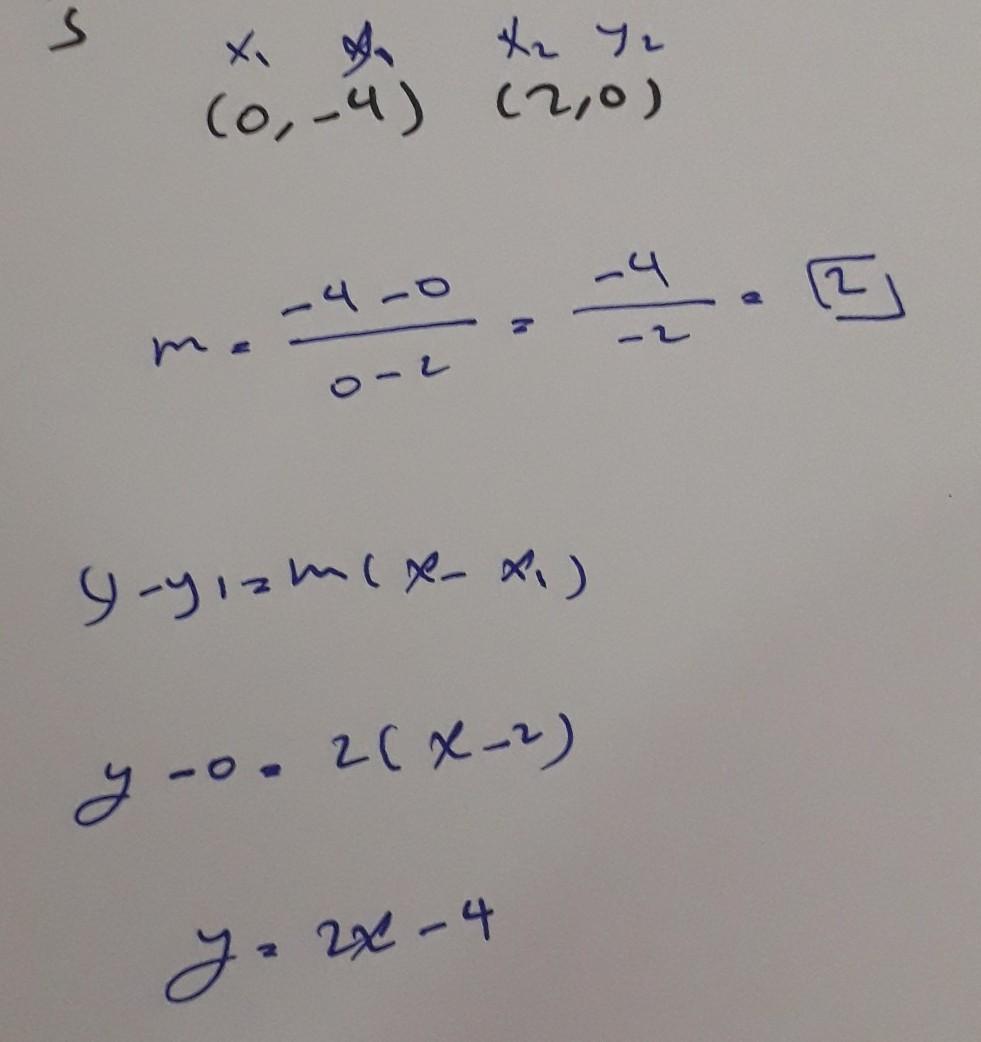 5
x₁ y₁ x₂ y₂
(0,-4) (2,0)
m = (-4 - 0)/(0 - 2) = -4/-2 = 2
y - y₁ = m(x - x₁)
y - 0 = 2(x - 2)
y = 2x - 4